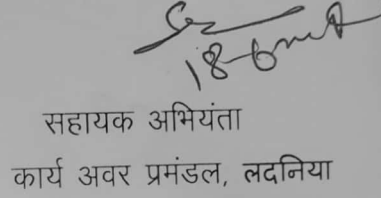 सहायक अभियंता
कार्य अवर प्रमंडल, लदनिया